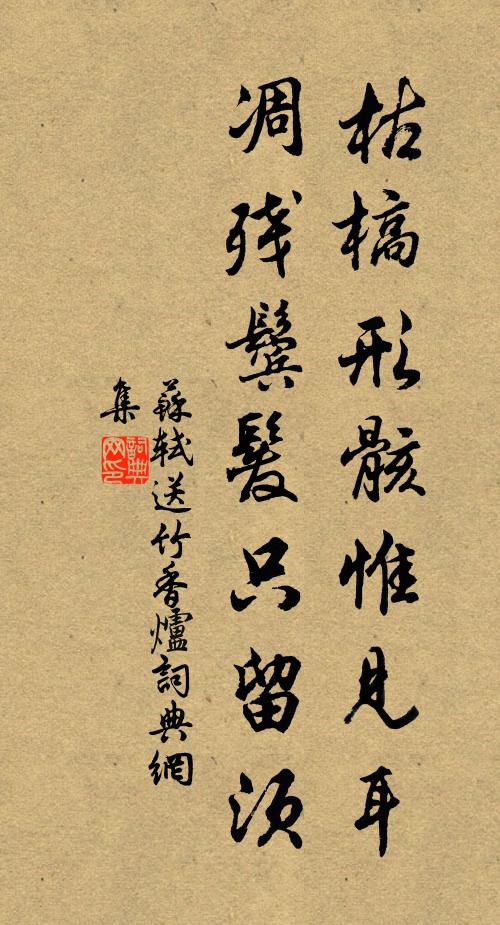 枯槁形骸惟見耳
凋残鬢髮只留須
蘇軾送竹香爐詞典網
集
詞典網印